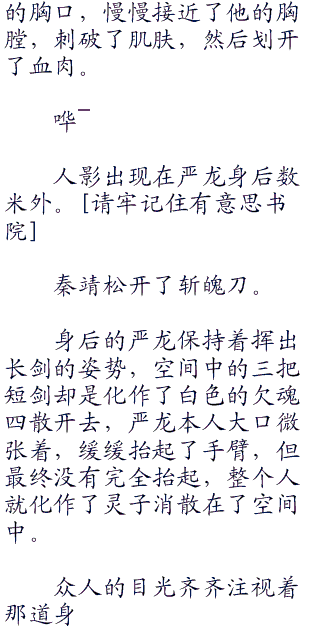 的胸口，慢慢接近了他的胸
膛，刺破了肌肤，然后划开
了血肉。
哗¯
人影出现在严龙身后数
米外。[请牢记住有意思书
院]
秦靖松开了斩魄刀。
身后的严龙保持着挥出
长剑的姿势，空间中的三把
短剑却是化作了白色的欠魂
四散开去，严龙本人大口微
张着，缓缓抬起了手臂，但
最终没有完全抬起，整个人
就化作了灵子消散在了空间
中。
众人的目光齐齐注视着
那道身